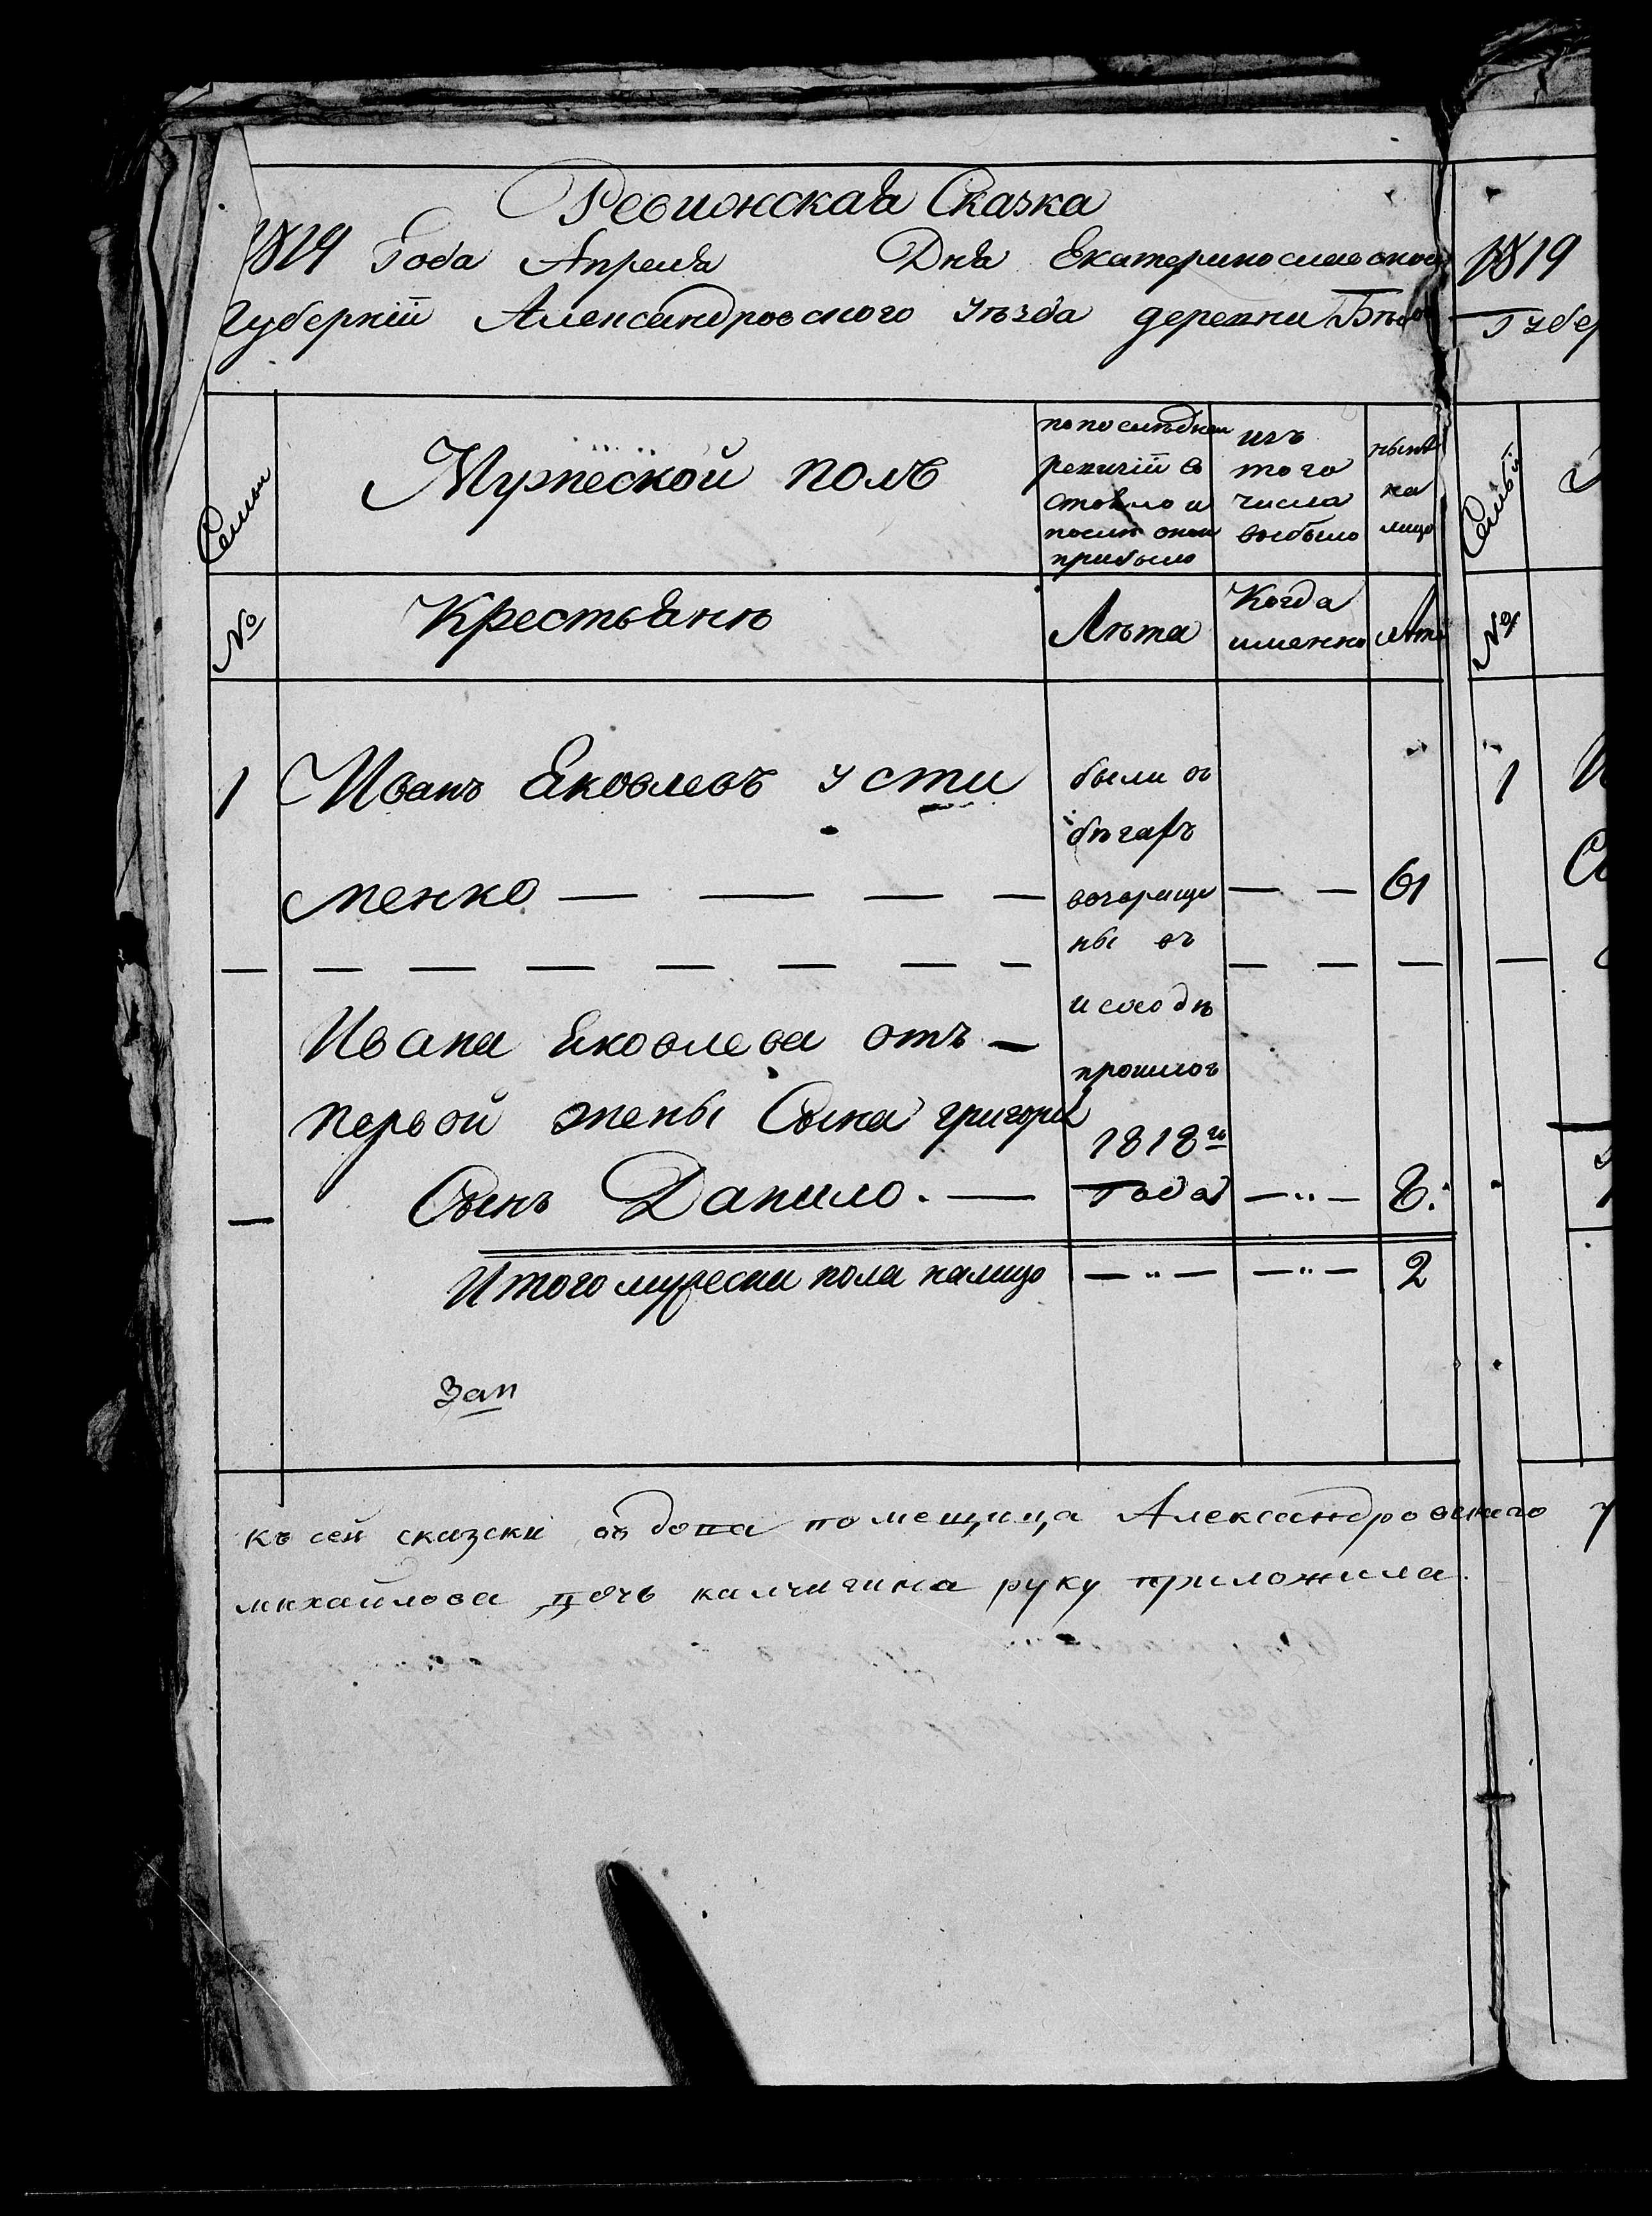 Ревижская Сказка
1819 Года Апреля Дня Екатеринославской
Губернїи Александровского уѣзда деревни
Семьи
Мужеской полъ
попоследнеи ревизїи состояло и после онои прибыло
изъ того числа выбыло
нынѣ на лицо
№
Крестьянѣ
Лѣта
Когда именно
лѣта
1 Иванъ Яковлевъ усти
менко — — — — — — 61
были въ
бѣгахъ
ны въ
прошлов
1818го
Года
Ивана Яковлева отъ —
первой жены Сына григоря
Сынъ Данило. — —"— 8.
Итого мужеска пола налицо —"— —"— 2
Зап
къ сей сказски вдова помещица Александровскаго
михайлова дочь калчигина руку приложила.
1819
Губер
Семьи
№
1